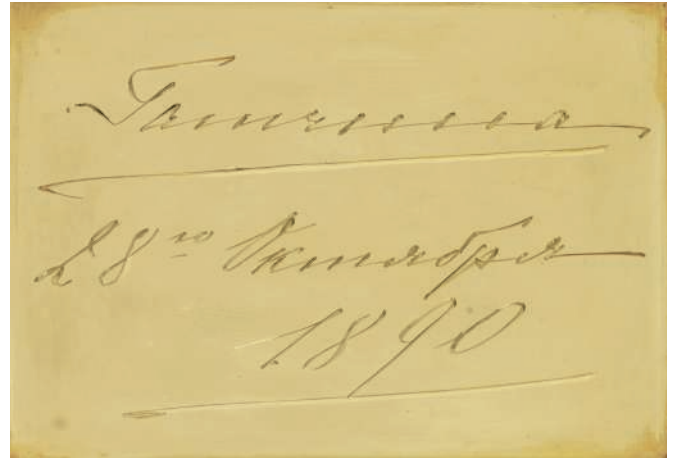 Гатчина
28го Октября
1890